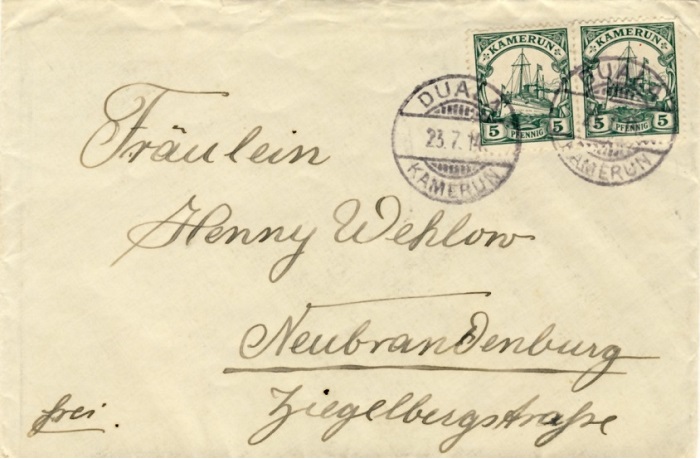 KAMERUN KAMERUN
5 PFENNIG 5 5 PFENNIG 5
DUALA DUALA
23.7.14
KAMERUN KAMERUN
Fräulein
Henny Wehlow
Neubrandenburg
Ziegelbergstraße
frei.